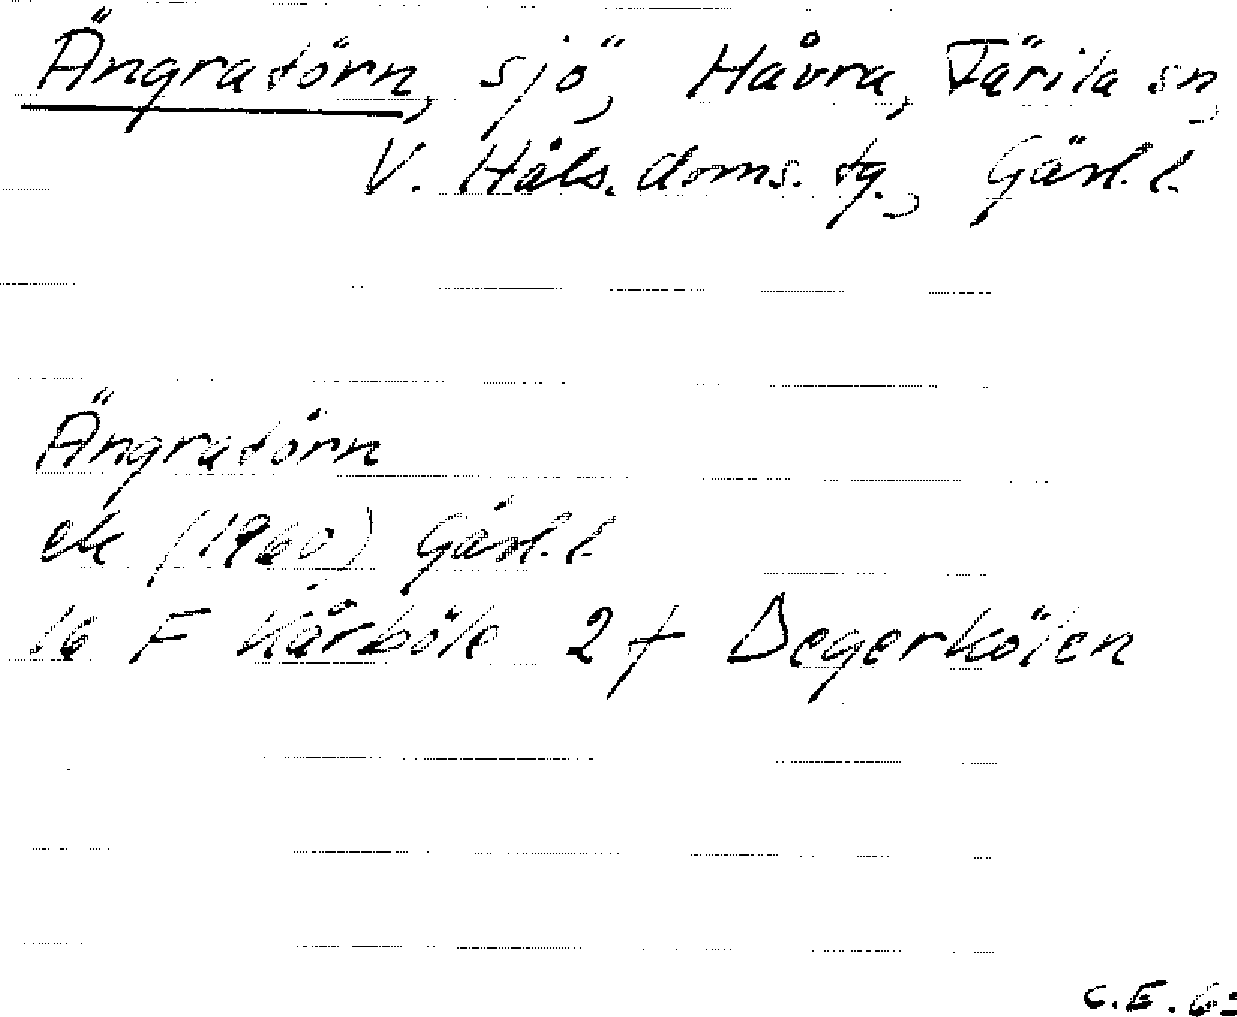 Ängratörn, sjö, Håvra, Färila sn,
V. Häls. doms. tg., Gävl. l.
Ängratörn
ek (1960) Gävl. l.
16 F Kårböle 2 f Degerkölen
C.E.